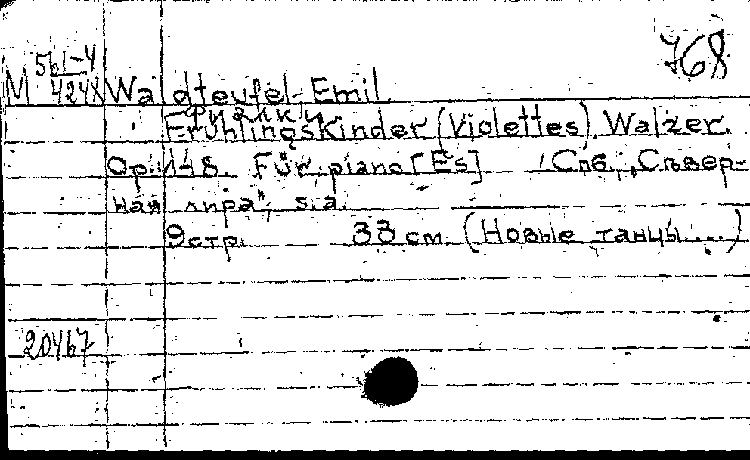 768
М 561-4
4248 Waldteufel Emil
Фиалки
Frühlingskinder (Violettes). Walzer.
Op. 148. Für piano [Es] Спб., „Север-
ная лира“, s.a.
9 стр. 33 см. (Новые танцы...)
20467